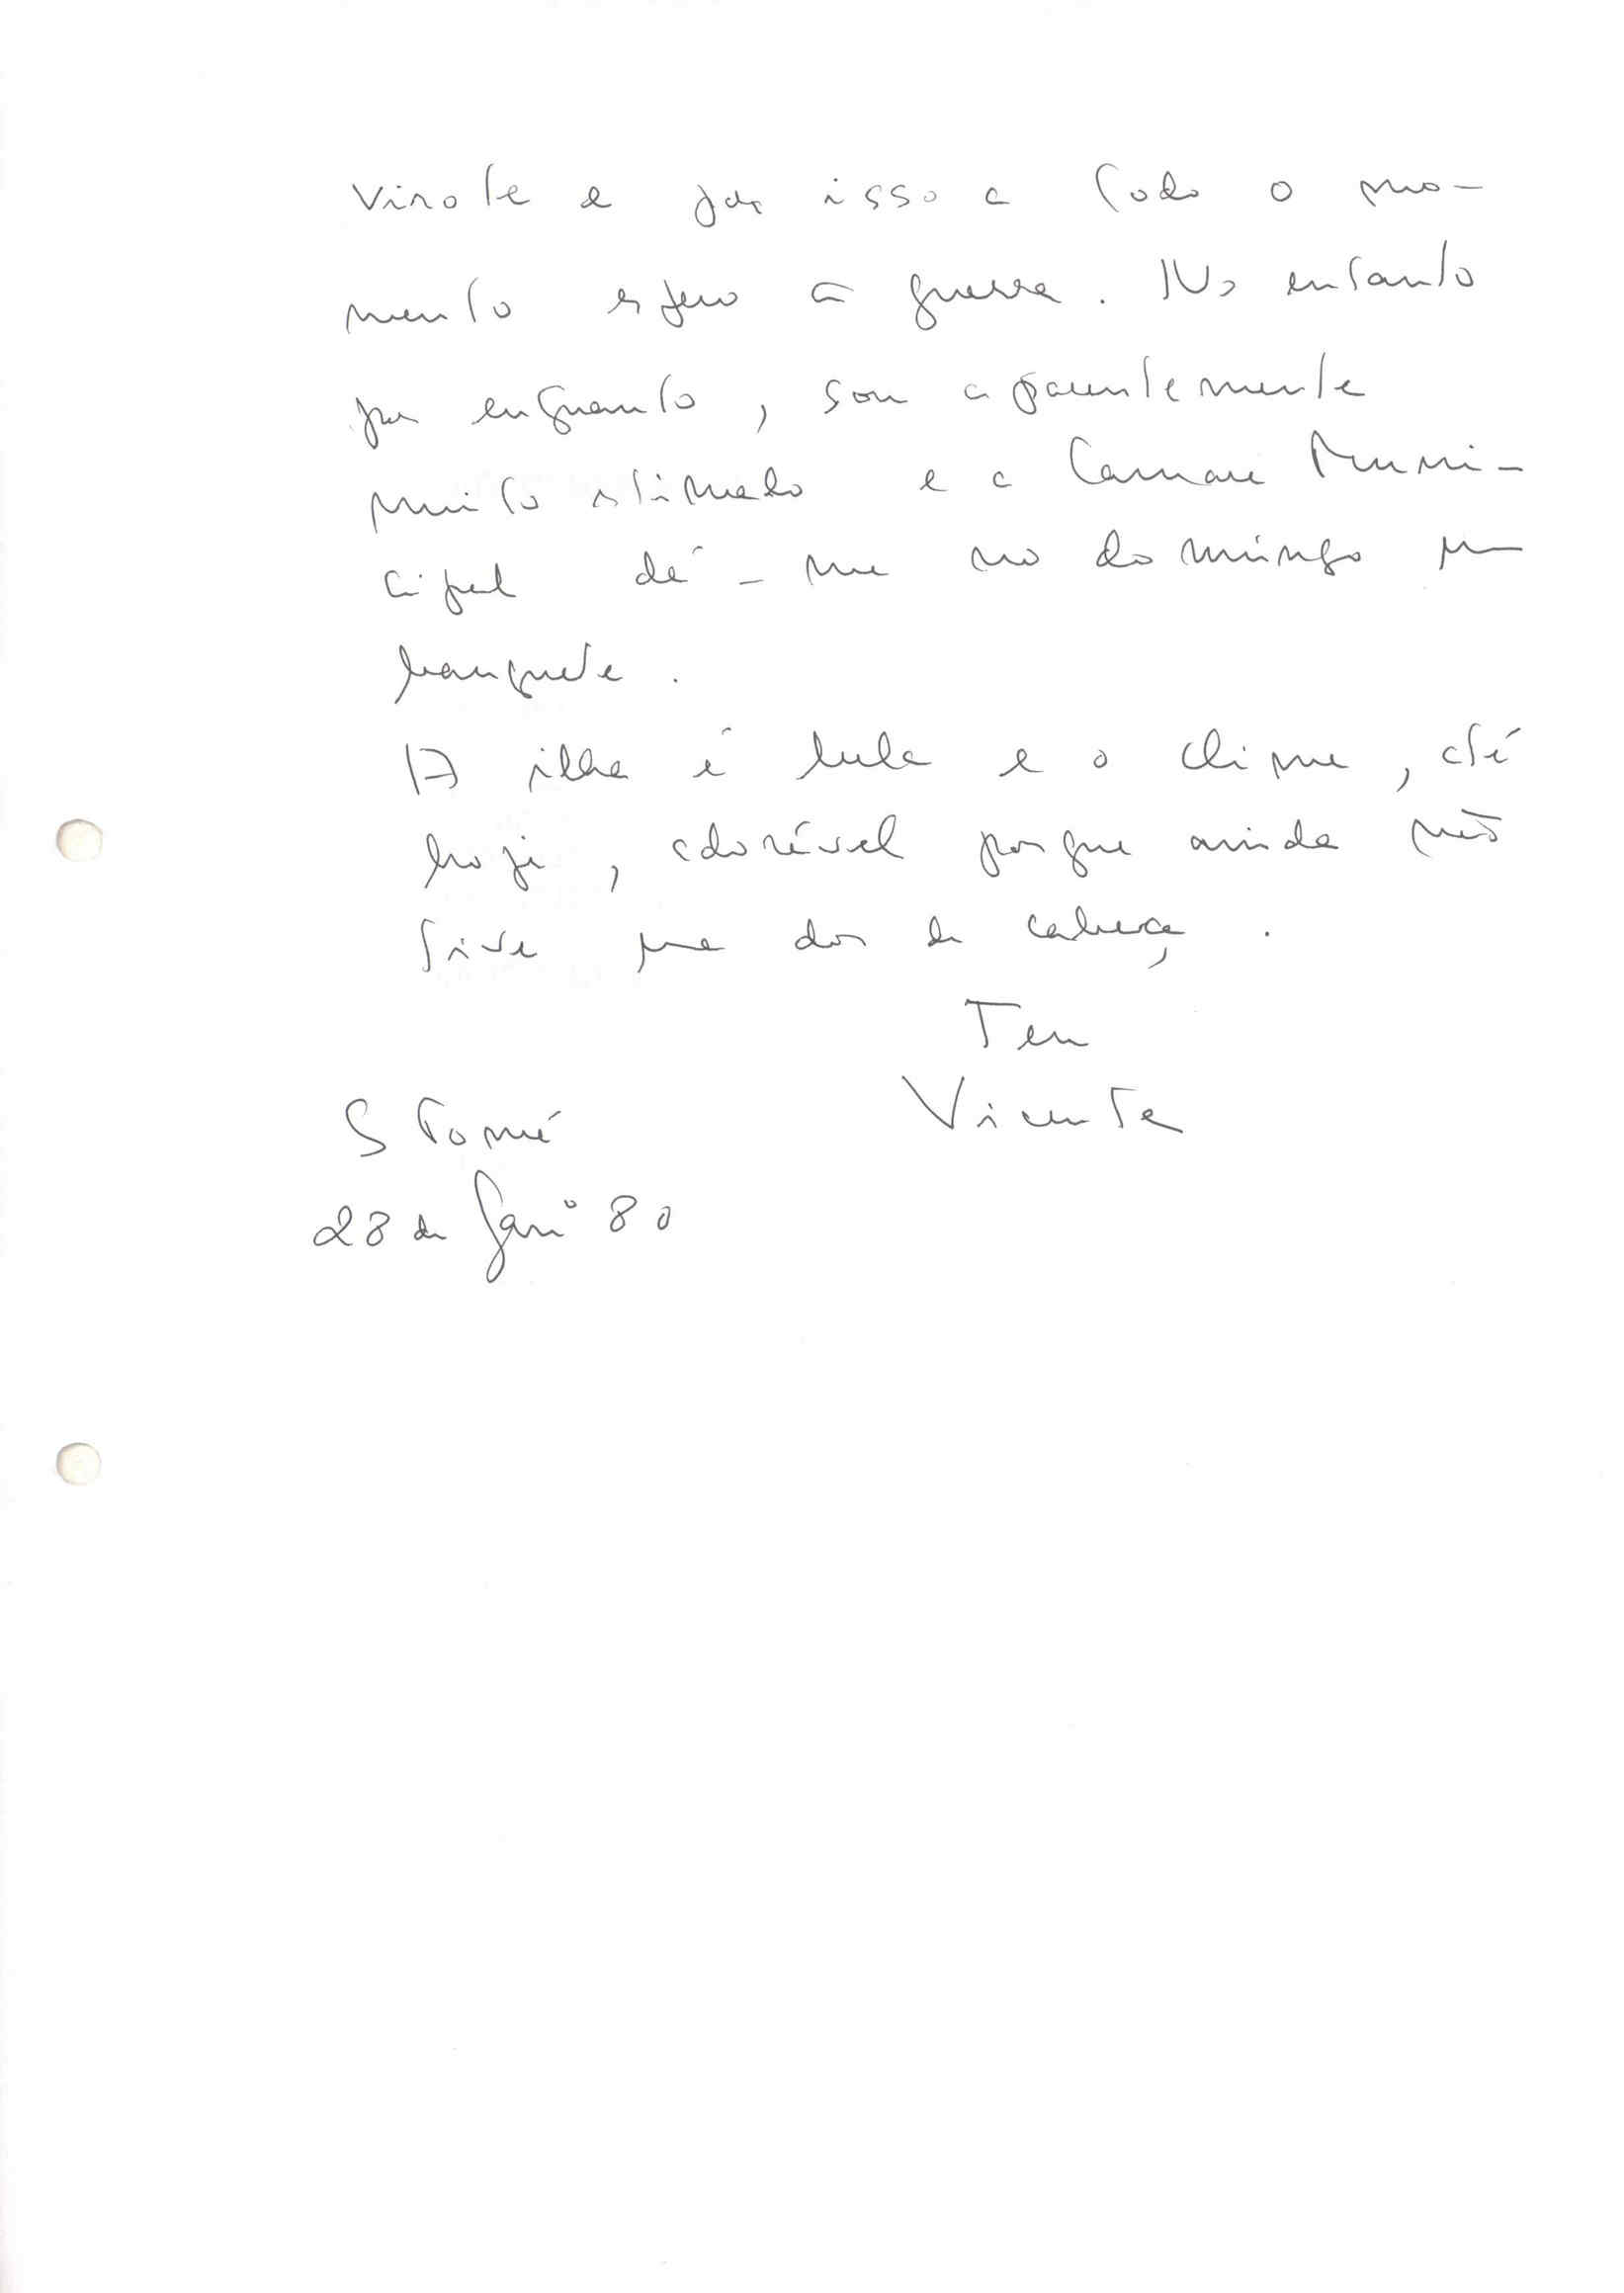 virote e por isso a todo o mo-
mento espero a guerra. No entanto
por enquanto, sou aparentemente
muito estimado e a Camara Muni-
cipal dá-me no domingo um
banquete.
A ilha é bela e o clima, até
hoje, adorável porque ainda não
tive uma dor de cabeça.
Teu
Vicente
S Tomé
28 de Janº 80